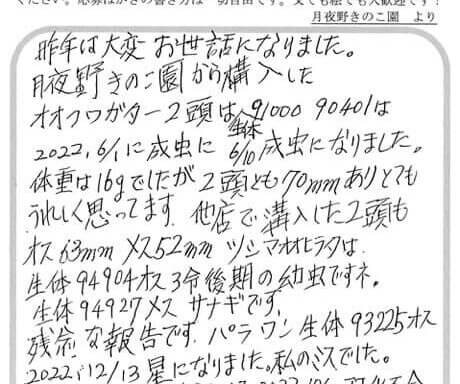 ください。応募はがきの書き方は一切自由です。文でも絵でも大歓迎です！
月夜野きのこ園 より
昨年は大変お世話になりました。
月夜野きのこ園から購入した
オオクワガタ－２頭は 生体 91000 90401は
2022.6/1に成虫に 6/10成虫になりました。
体重は16gでしたが２頭とも70mmありとても
うれしく思ってます。他店で購入した２頭も
オス63mm メス52mm ツシマオオヒラタは、
生体94904オス3令後期の幼虫ですネ。
生体94927メス サナギです。
残念な報告です。パラワン生体93225オス
2022,12/13星になりました。私のミスでした。